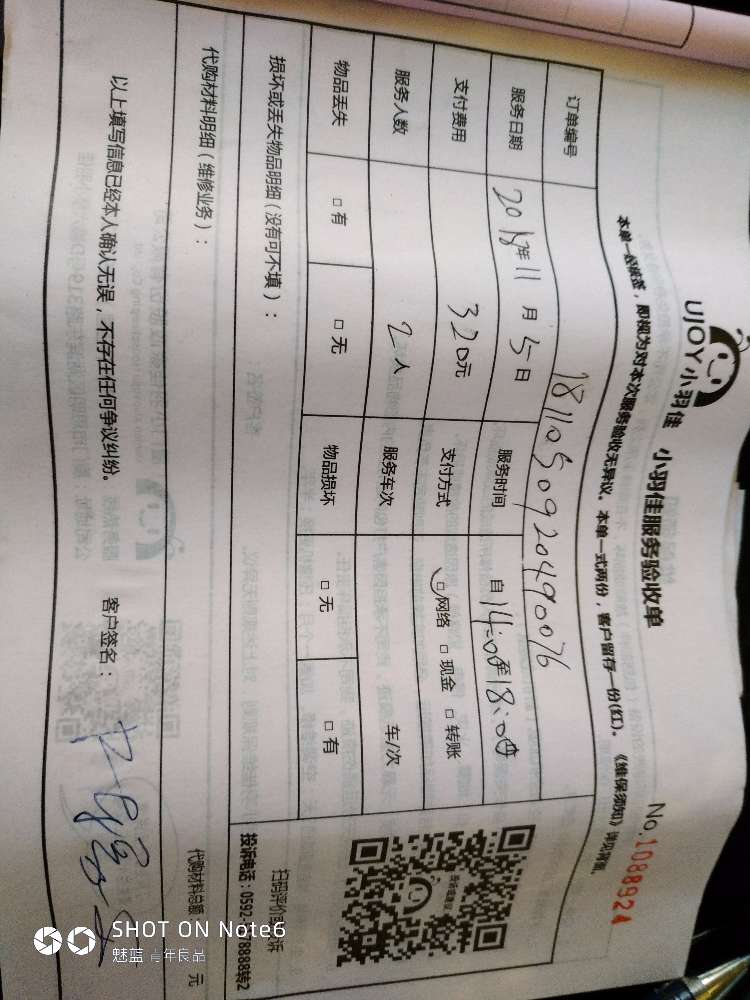 UJOY小羽佳 小羽佳服务验收单 No.1088924
本单一经签签,即视为对本次服务验收无异议。本单一式两份,客户留存一份(红)。《维保须知》详见背面。
订单编号 1811050920490076
服务日期 2018年11月5日 服务时间 自14:00至18:00
支付费用 320元 支付方式 □网络 □现金 □转账
服务人数 2人 服务车次 车/次
物品丢失 □有 □无 物品损坏 □无 □有
损坏或丢失物品明细(没有可不填):
扫码评价或投诉
投诉电话:0592-
78888转2
代购材料明细(维修业务): 代购材料总额 元
以上填写信息已经本人确认无误,不存在任何争议纠纷。 客户签名:
SHOT ON Note6
魅蓝 青年良品